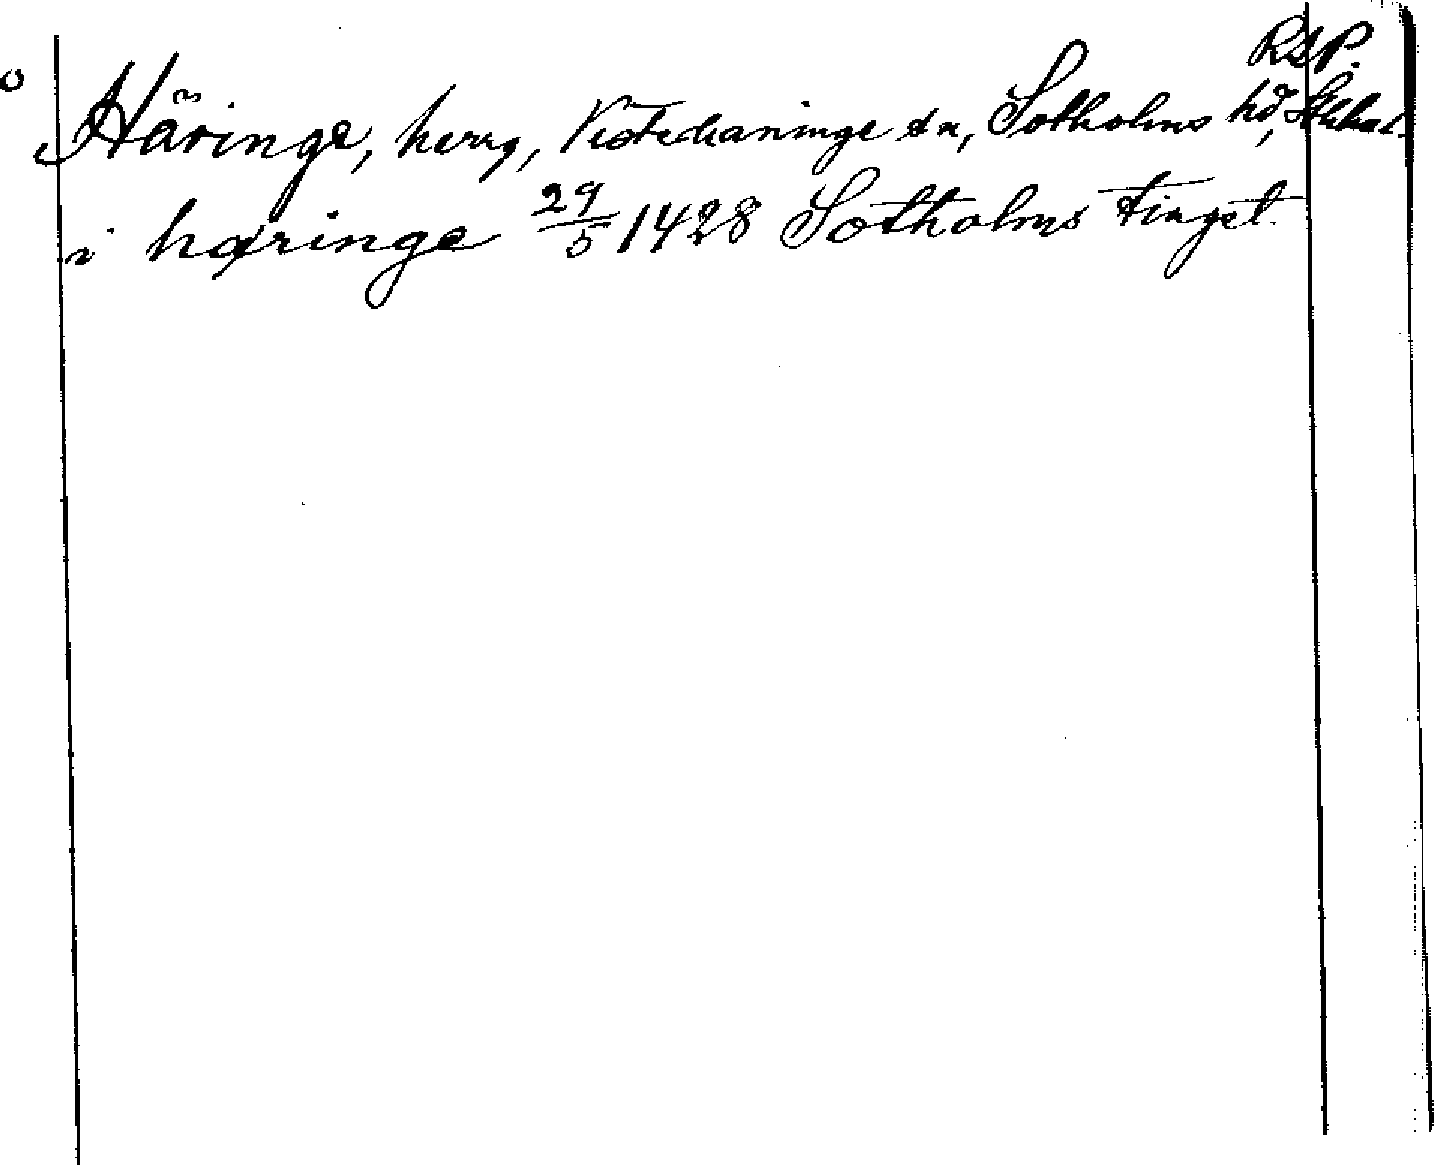 RAP.
Häringe, herrg, Vesterhaninge sn, Sotholms hd,
i hæringe 29/5 1428 Sotholms tinget